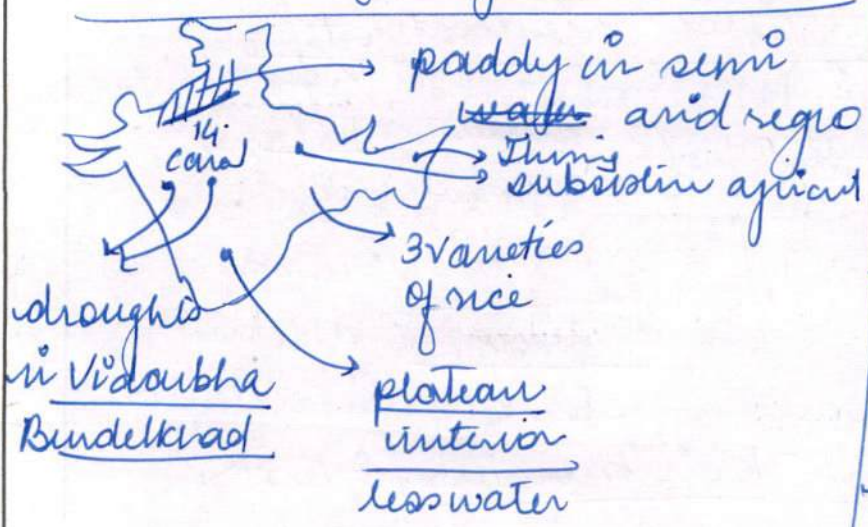 paddy in semi
water arid regio
Jhumi
subsistin agricul
14.
canal
3 varieties
of rice
droughts
in Vidarubha
Bundelkhad
plateau
interior
less water